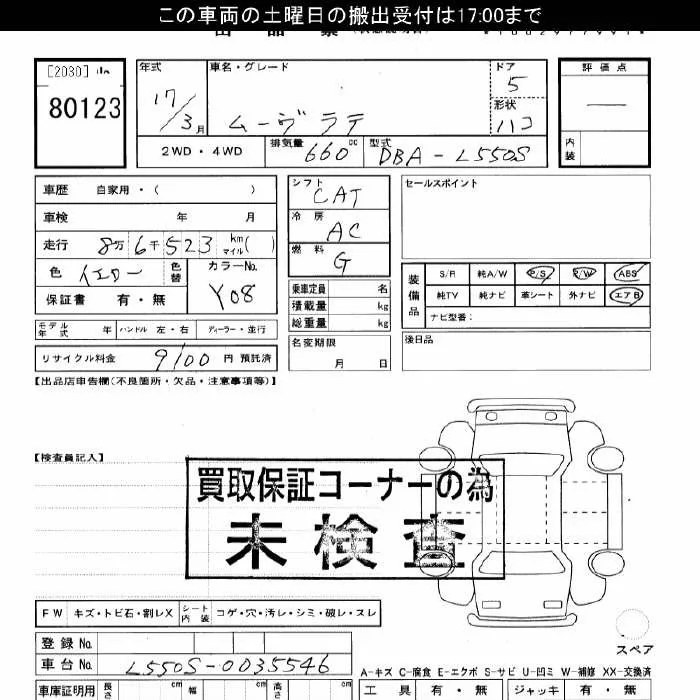 この車両の土曜日の搬出受付は17:00まで
[2030]
80123
年式
17/3月
車名・グレード
ムーヴラテ
ドア
5
形状
ハコ
評価点
―
内装
2WD・4WD
排気量
660cc
型式
DBA-L550S
車歴 自家用・( )
車検 年 月
走行 8万6千523 km マイル( )
色 イエロー 色替
カラーNo.
Y08
保証書 有・無
モデル年式 年 ハンドル 左・右 ディーラー・並行
リサイクル料金 9100円預託済
シフト
CAT
冷房
AC
燃料
G
乗車定員 名
積載量 kg
総重量 kg
名変期限
月 日
セールスポイント
装備品
S/R 純A/W P/S P/W ABS
純TV 純ナビ 革シート 外ナビ エアB
ナビ型番:
後日品
【出品店申告欄(不良箇所・欠品・注意事項等)】
【検査員記入】
買取保証コーナーの為
未検査
スペア
FW キズ・トビ石・割レX シート内装 コゲ・穴・汚レ・シミ・破レ・スレ
登録No.
車台No. L550S-0035546
車庫証明用 長さ cm 幅 cm 高さ cm
A-キズ C-腐食 E-エクボ S-サビ U-凹ミ W-補修 XX-交換済
工具 有・無 ジャッキ 有・無